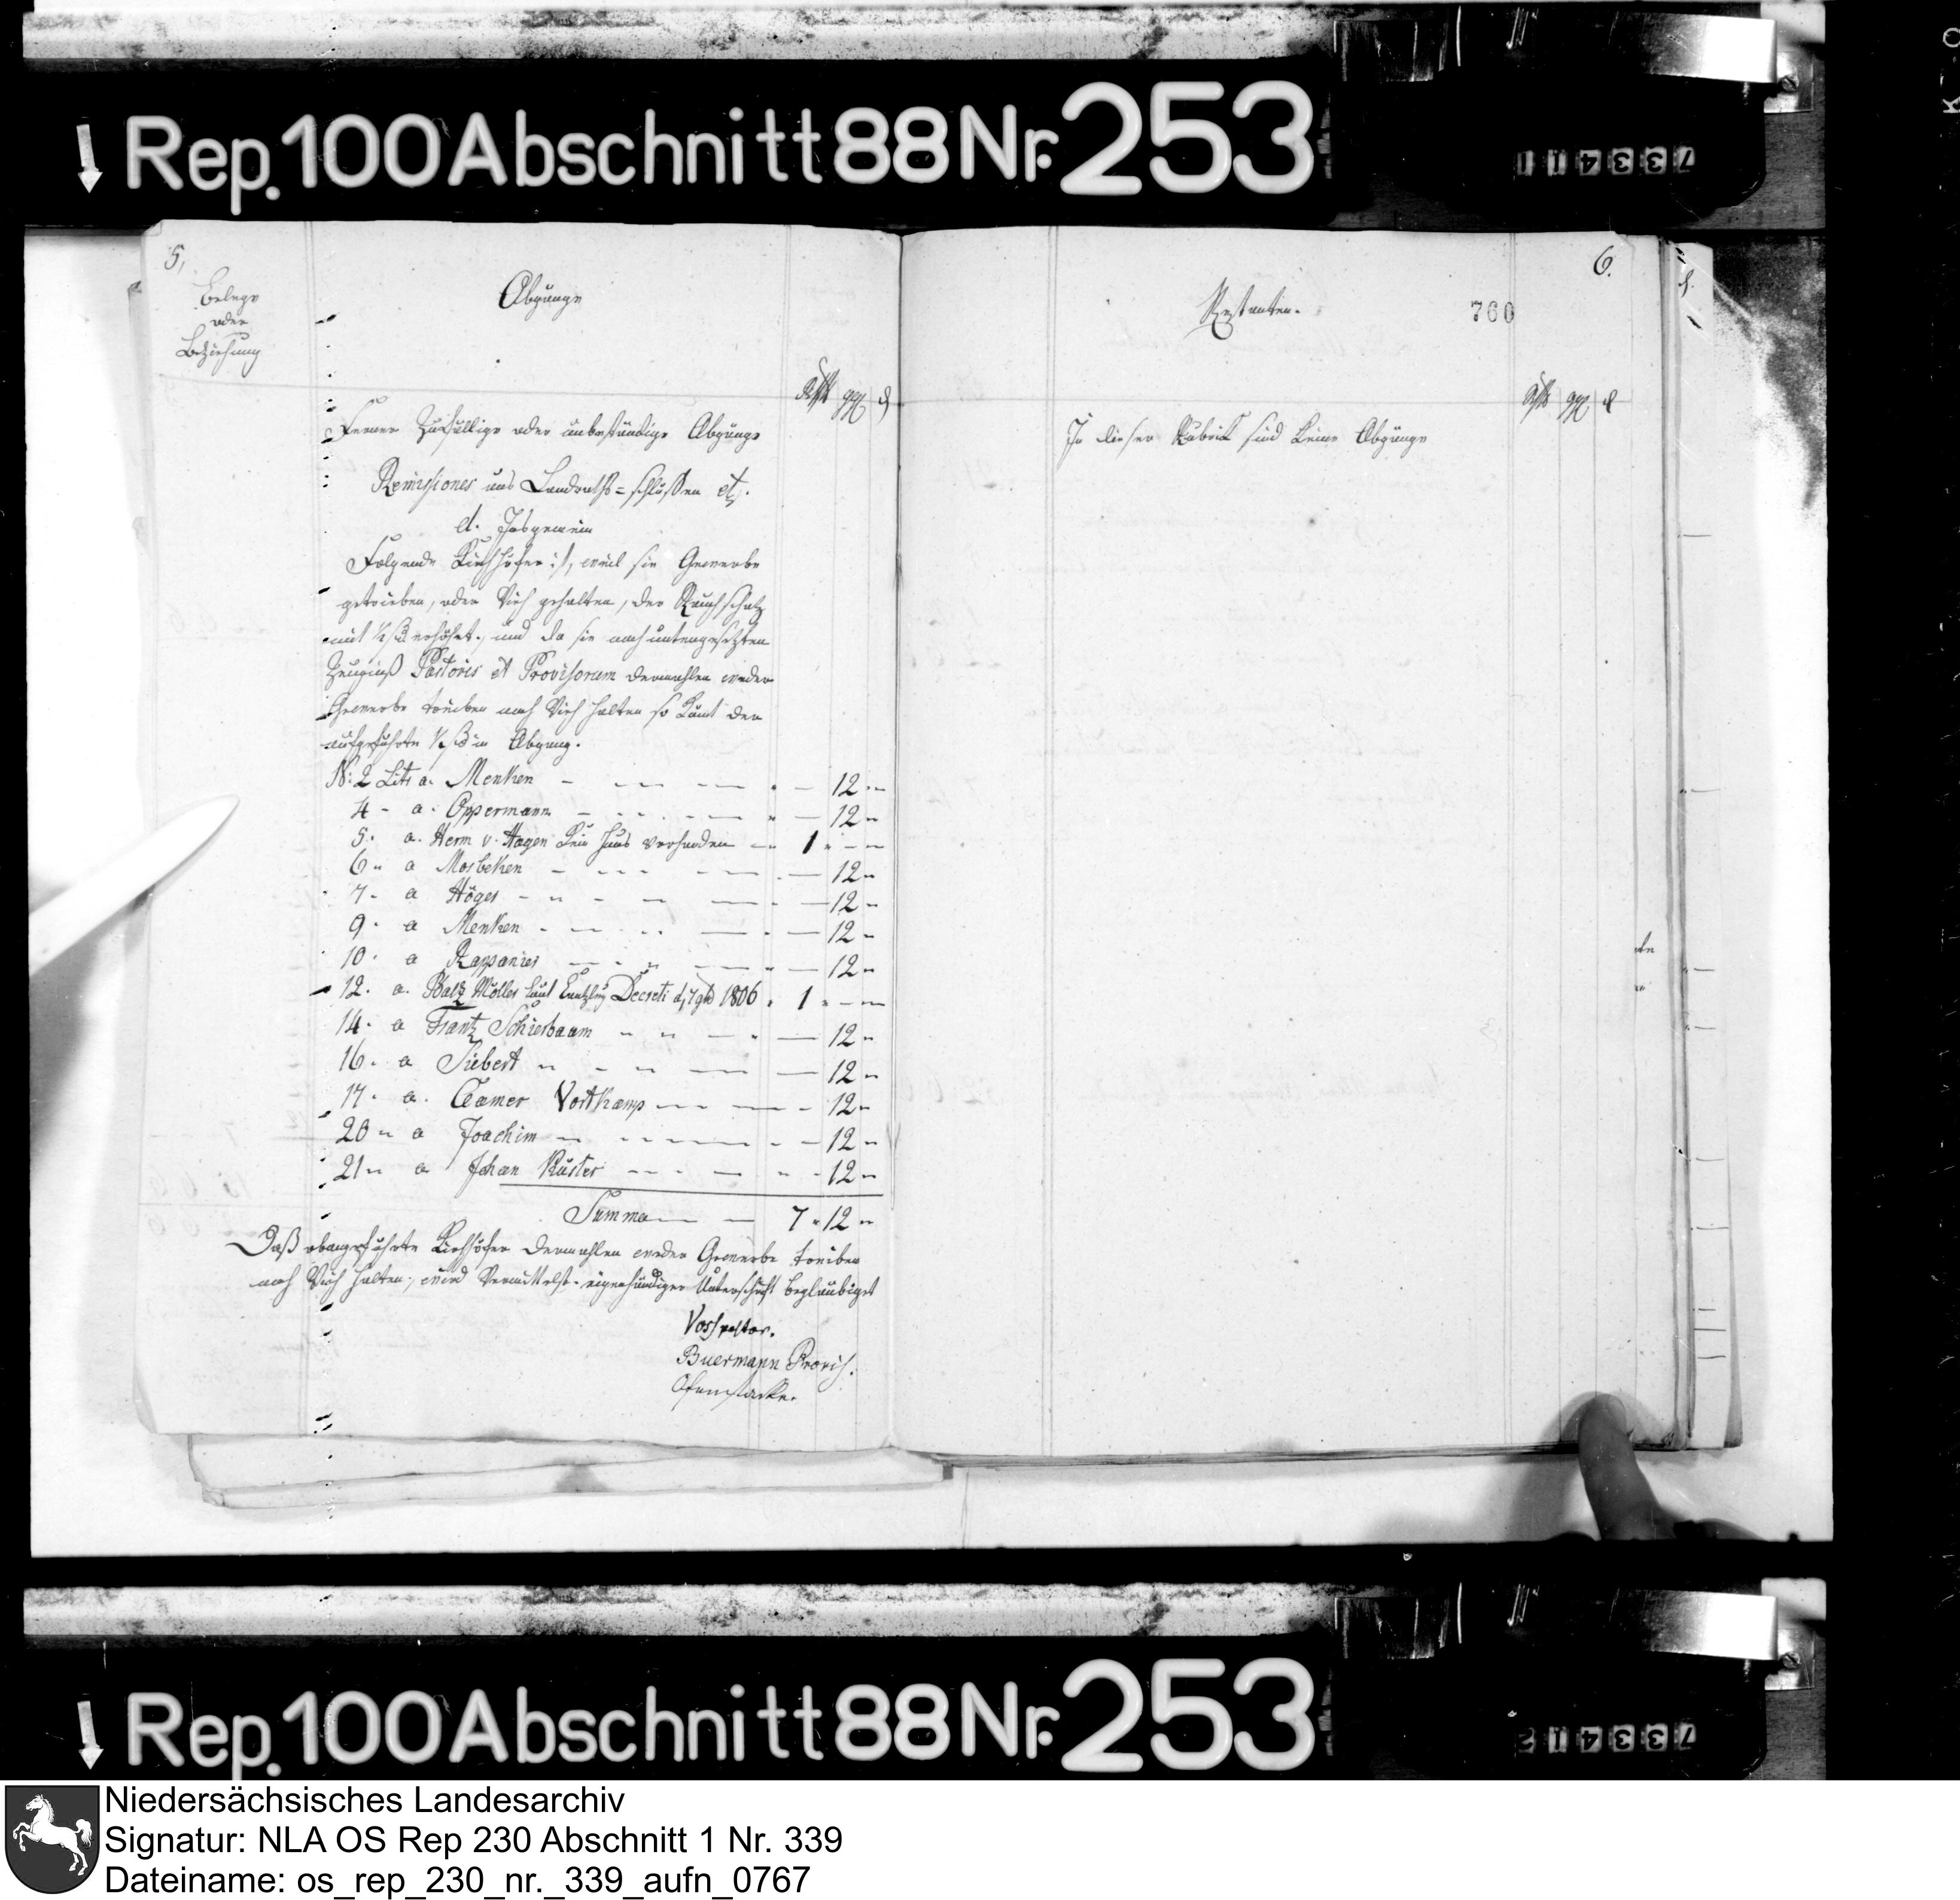 Rep. 100 Abschnitt 88 Nr. 253
733411
5.
Belege
oder
Beziehung
Abgänge
Rthlr ggl d
Ferner Zufällige oder unbeständige Abgänge
Remissiones aus Landraths=schlüssen etc.
d. Insgemein
Folgende Kirchhöfer ist, weil sie Gewerbe
getrieben, oder Vieh gehalten, der Rauchschatz
mit erhöhet, und da sie nach untengesetzten
Zeugniß Pastoris et Provisorum dermahlen weder
Gewerbe treiben noch Vieh halten so kömt der
aufgeführte in Abgang.
N: 2 Litr a. Menken - - - - 12 -
4 - a. Oppermann - - - - 12 -
5. a. Herm v. Hagen kein Haus vorhanden - 1 - -
6 - a Mosbeken - - - - 12 -
7. a Höger - - - - 12 -
9. a Menken - - - - 12 -
10. a Rappanier - - - - 12 -
12. a. Möller laut Decreti 1806. 1 - -
14. a Frantz Schierbaum - - - 12 -
16. a Siebert - - - - 12 -
17. a. Cramer Vortkamp - - - 12 -
20 - a Joachim - - - - 12 -
21 - a Johan Küster - - - - 12 -
Summa - - 7 - 12 -
Daß obangeführte Kirchhöfer dermahlen weder Gewerbe treiben
noch Vieh halten, wird Vermittelst eigenhändiger Unterschrift beglaubiget
Voss pastor.
Buermann Provis.
6.
Restanten.
760
Rthlr ggl d
In dieser Rubrik sind keine Abgänge
Rep. 100 Abschnitt 88 Nr. 253
733412
Niedersächsisches Landesarchiv
Signatur: NLA OS Rep 230 Abschnitt 1 Nr. 339
Dateiname: os_rep_230_nr._339_aufn_0767